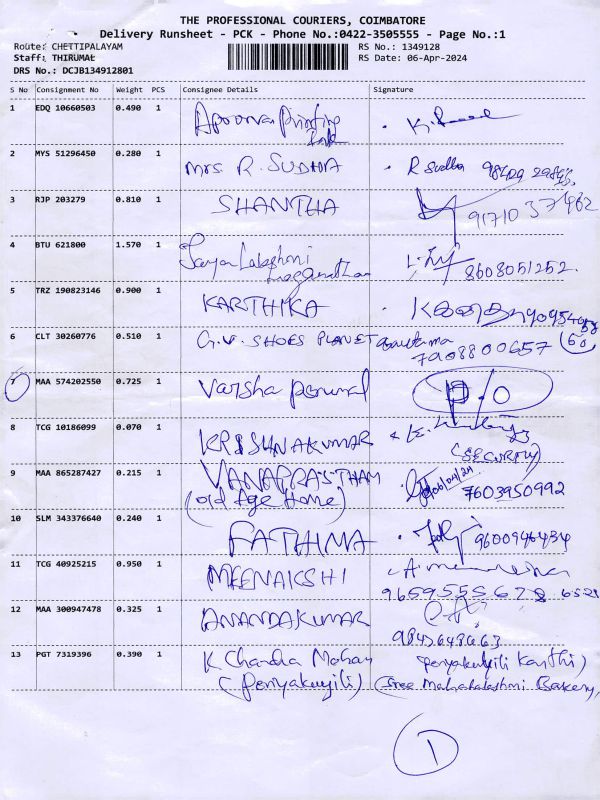 THE PROFESSIONAL COURIERS, COIMBATORE
Delivery Runsheet - PCK - Phone No.:0422-3505555 - Page No.:1
Route: CHETTIPALAYAM RS No.: 1349128
Staff: THIRUMAL RS Date: 06-Apr-2024
DRS No.: DCJB134912801
S No Consignment No Weight PCS Consignee Details Signature
1 EDQ 10660503 0.490 1 Apoorva Printing
Ink
2 MYS 51296450 0.280 1 Mrs R. SUDHA R Sudha
3 RJP 203279 0.810 1 SHANTHA 9171037462
4 BTU 621800 1.570 1
8608051252.
5 TRZ 190823146 0.900 1 KARTHIKA
6 CLT 30260776 0.510 1 G.V. SHOES PLANET
7908800657
7 MAA 574202550 0.725 1 Varsha porwal P/O
8 TCG 10186099 0.070 1 KRISHNAKUMAR
(SECURITY)
9 MAA 865287427 0.215 1 VANAPRASTHAM 06/04/24
(old Age Home) 7603950992
10 SLM 343376640 0.240 1 FATHIMA 9600946434
11 TCG 40925215 0.950 1 MEENAKSHI
12 MAA 300947478 0.325 1 ANANDAKUMAR
9842648663
13 PGT 7319396 0.390 1 K Chandra Mohan
(periyakuyili) (Sree Mahalakshmi Bakery,
1